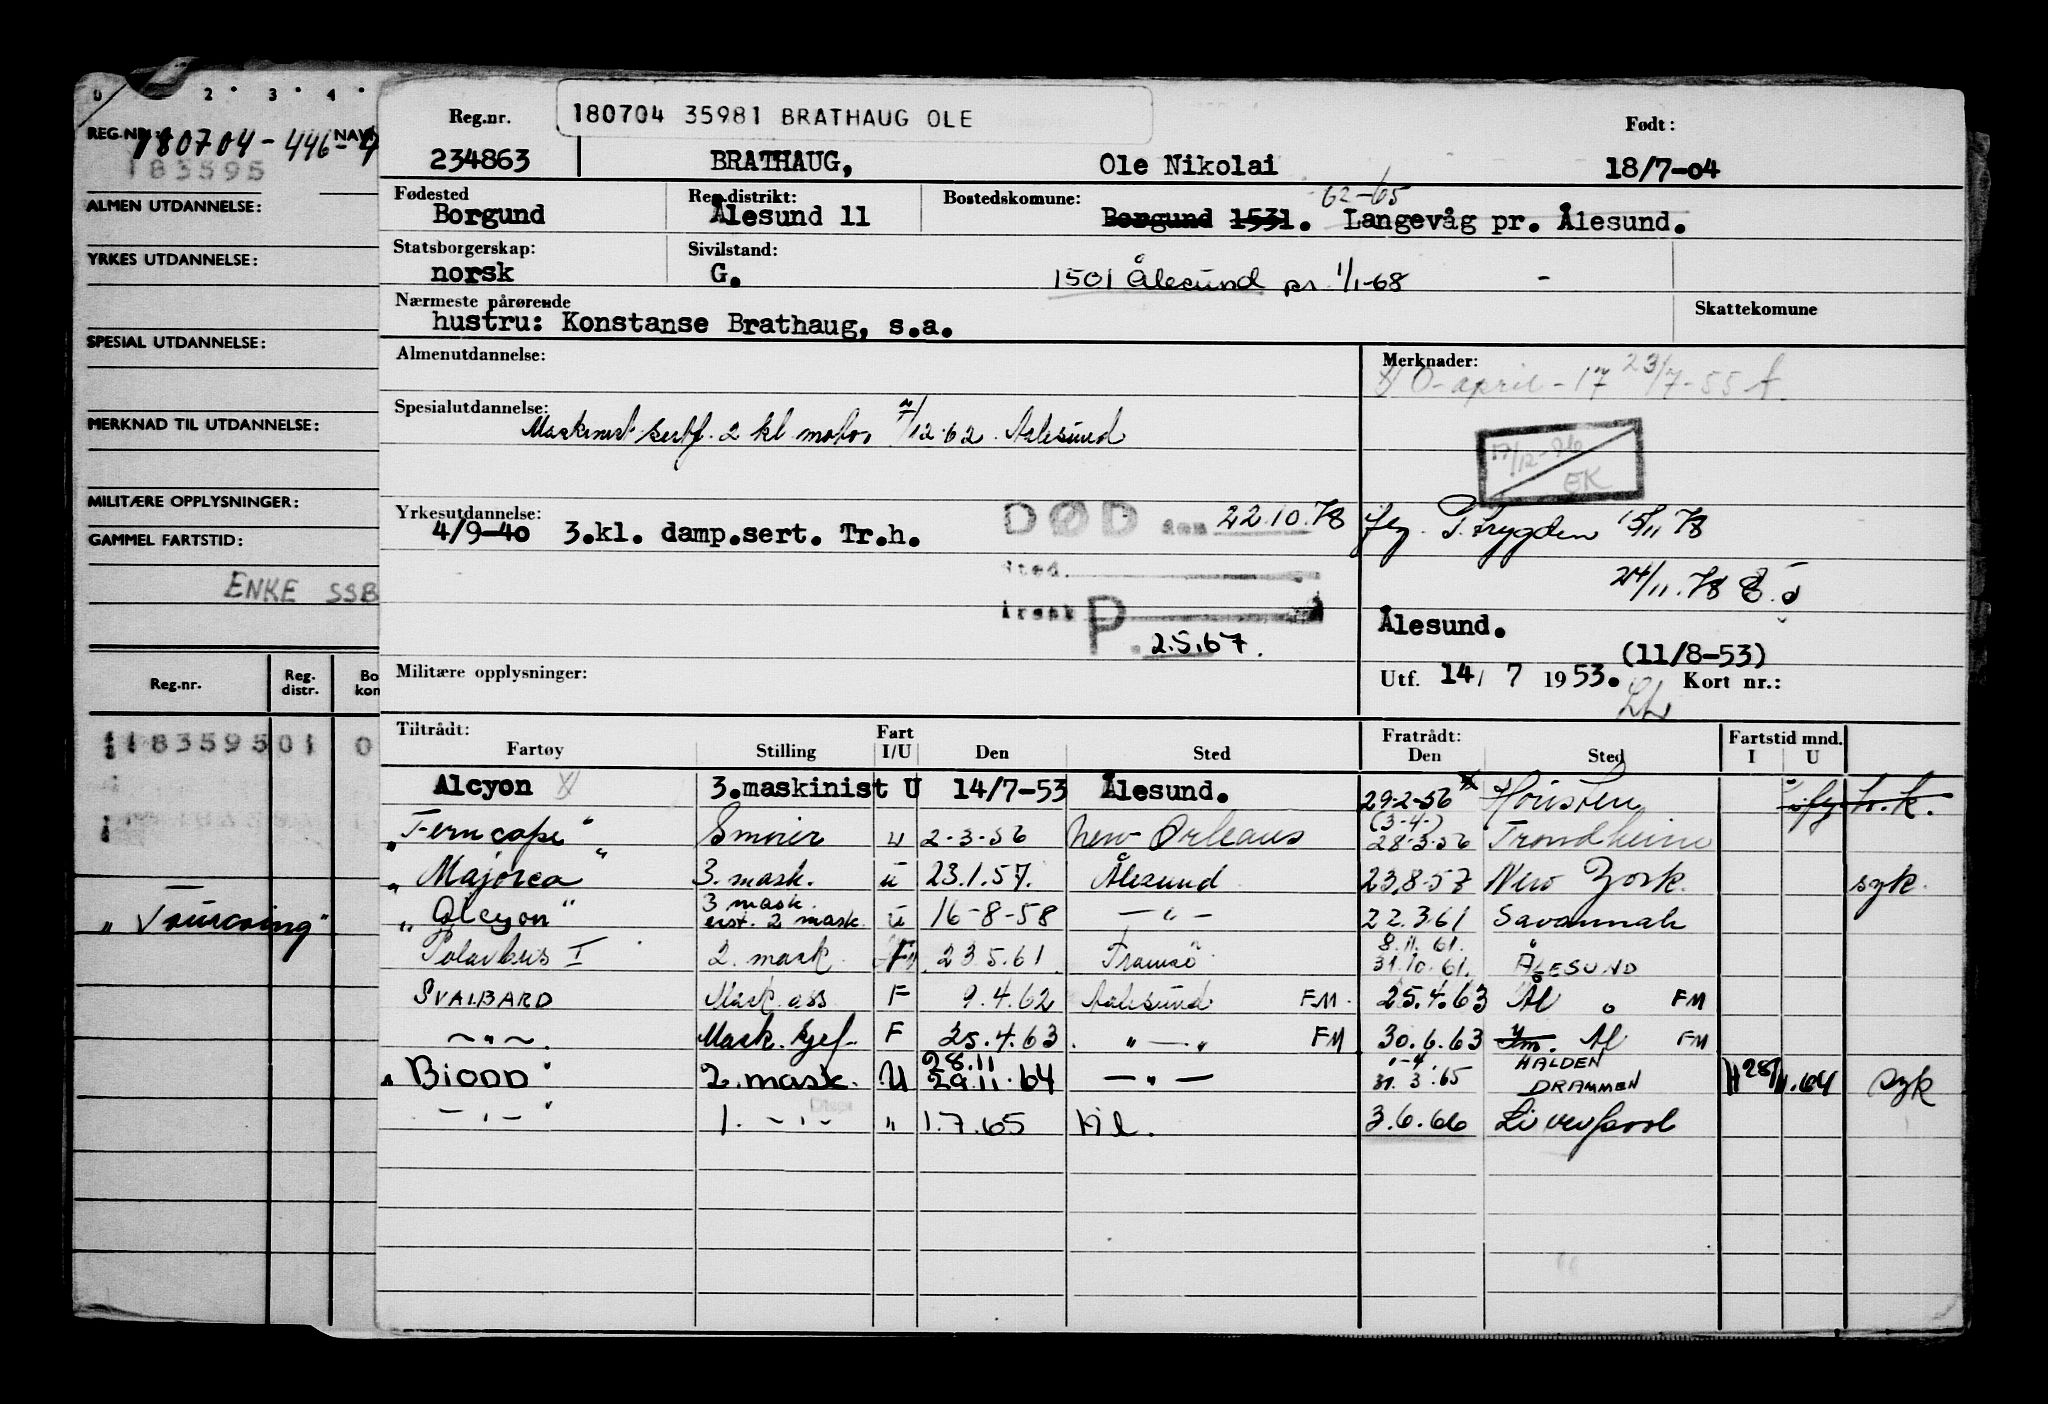 0 2 3 4
REG.NR.: 180704-446 NAVN
183595
ALMEN UTDANNELSE:
YRKES UTDANNELSE:
SPESIAL UTDANNELSE:
MERKNAD TIL UTDANNELSE:
MILITÆRE OPPLYSNINGER:
GAMMEL FARTSTID:
ENKE SSB
Reg.nr. Reg. distr. Bo kom
1183595 01 0
"Tourcoing"
Reg.nr. 180704 35981 BRATHAUG OLE Født:
234863 BRATHAUG, Ole Nikolai 18/7-04
Fødested Reg.distrikt: Bostedskomune: 62-65
Borgund Ålesund 11 Borgund 1531. Langevåg pr. Ålesund.
Statsborgerskap: Sivilstand:
norsk G. 1501 Ålesund pr. 1/1-68 -
Nærmeste pårørende Skattekomune
hustru: Konstanse Brathaug, s.a.
Almenutdannelse: Merknader:
x/ 0-april-17 23/7-55
Spesialutdannelse:
Maskinist sertf. 2 kl motor /12-62 Aalesund
17/12- EK
Yrkesutdannelse: DØD den 22.10.78 P.Trygden 15/11 78
4/9-40 3.kl. damp.sert. Tr.h.
Sted.
24/11.78
Årsak P. 2.5.67.
Ålesund.
(11/8-53)
Militære opplysninger: Utf. 14/ 7 1953. Kort nr.:
Tiltrådt: Fart Fratrådt: Fartstid mnd.
Fartøy Stilling I/U Den Sted Den Sted I U
Alcyon x/ 3.maskinist U 14/7-53 Ålesund. 29-2-56 x Housten
(3-4-)
"Ferncape" Smører u 2-3-56 New Orleans 28-3-56 Trondheim
"Majorca 3. mask. u 23.1.57. Ålesund 23.8-57 New York. syk.
3 mask.
"Alcyon" 2 mask. u 16-8-58 -"- 22.3.61 Savannah
8.11.61.
Polarbris I 2. mask. F 23.5.61. Tromsö 31.10.61. ÅLESUND
SVALBARD Mask. ass F 9.4.62 Aalesund FM. 25.4.63 Ål FM
-"-. Mask. sjef F 25.4.63. "-" FM 30.6.63 Ål FM
28.11 "-4. HALDEN
"BIODD" 2. mask. U 29.11.64 -"- 31.3.65 DRAMMEN 28/11.64 syk
-"-" 1. -"- " 1.7.65 Kiel. 3.6.66 Liverpool